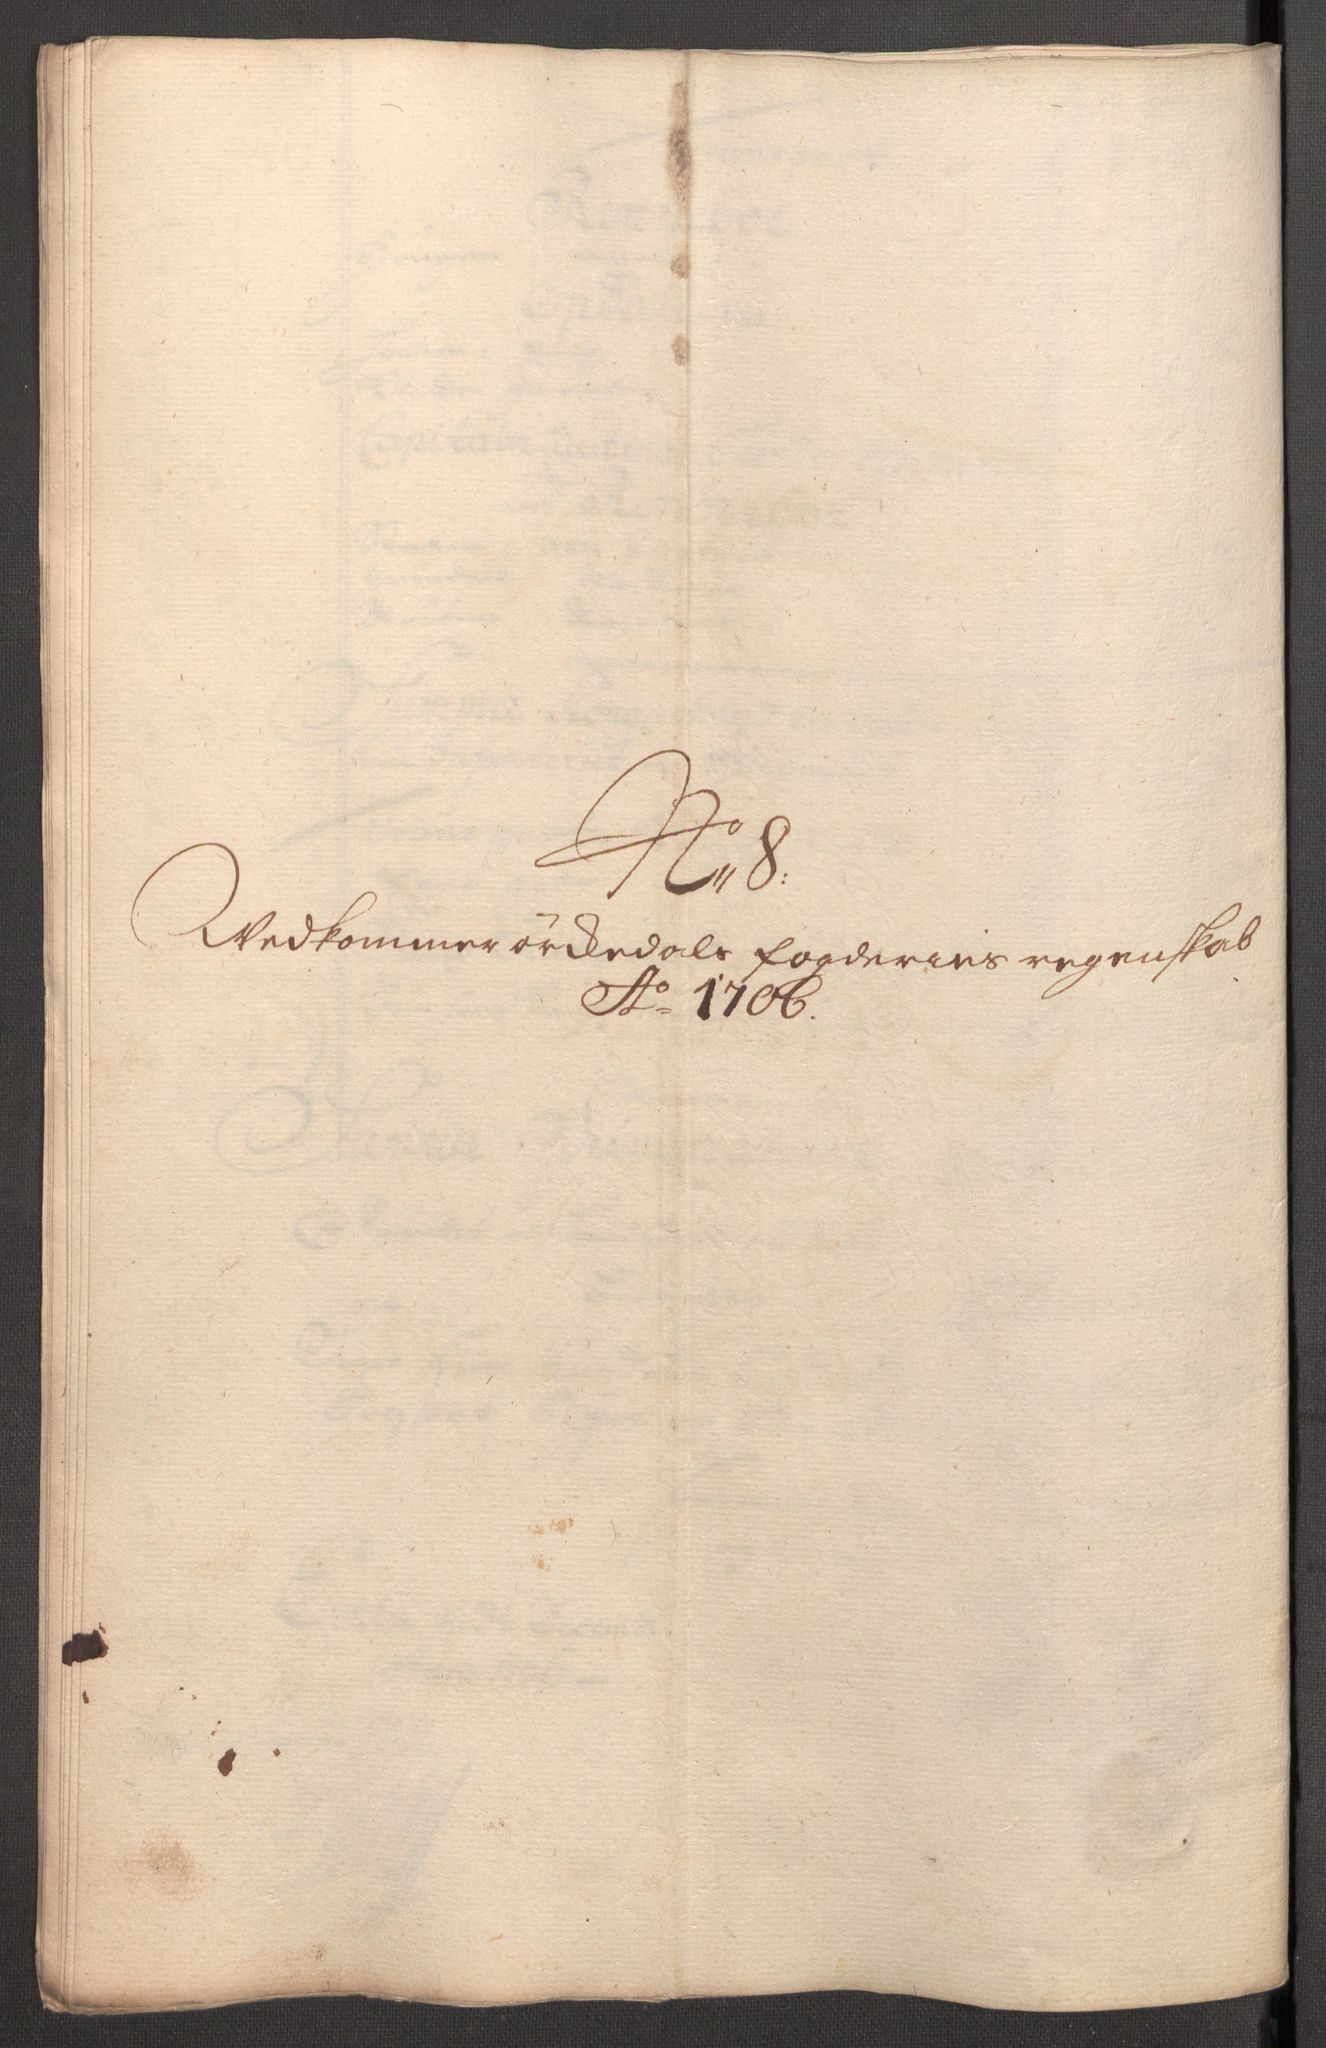 No 8:
Vedkommer ördedals fogderies regenskab
Ao 1706.